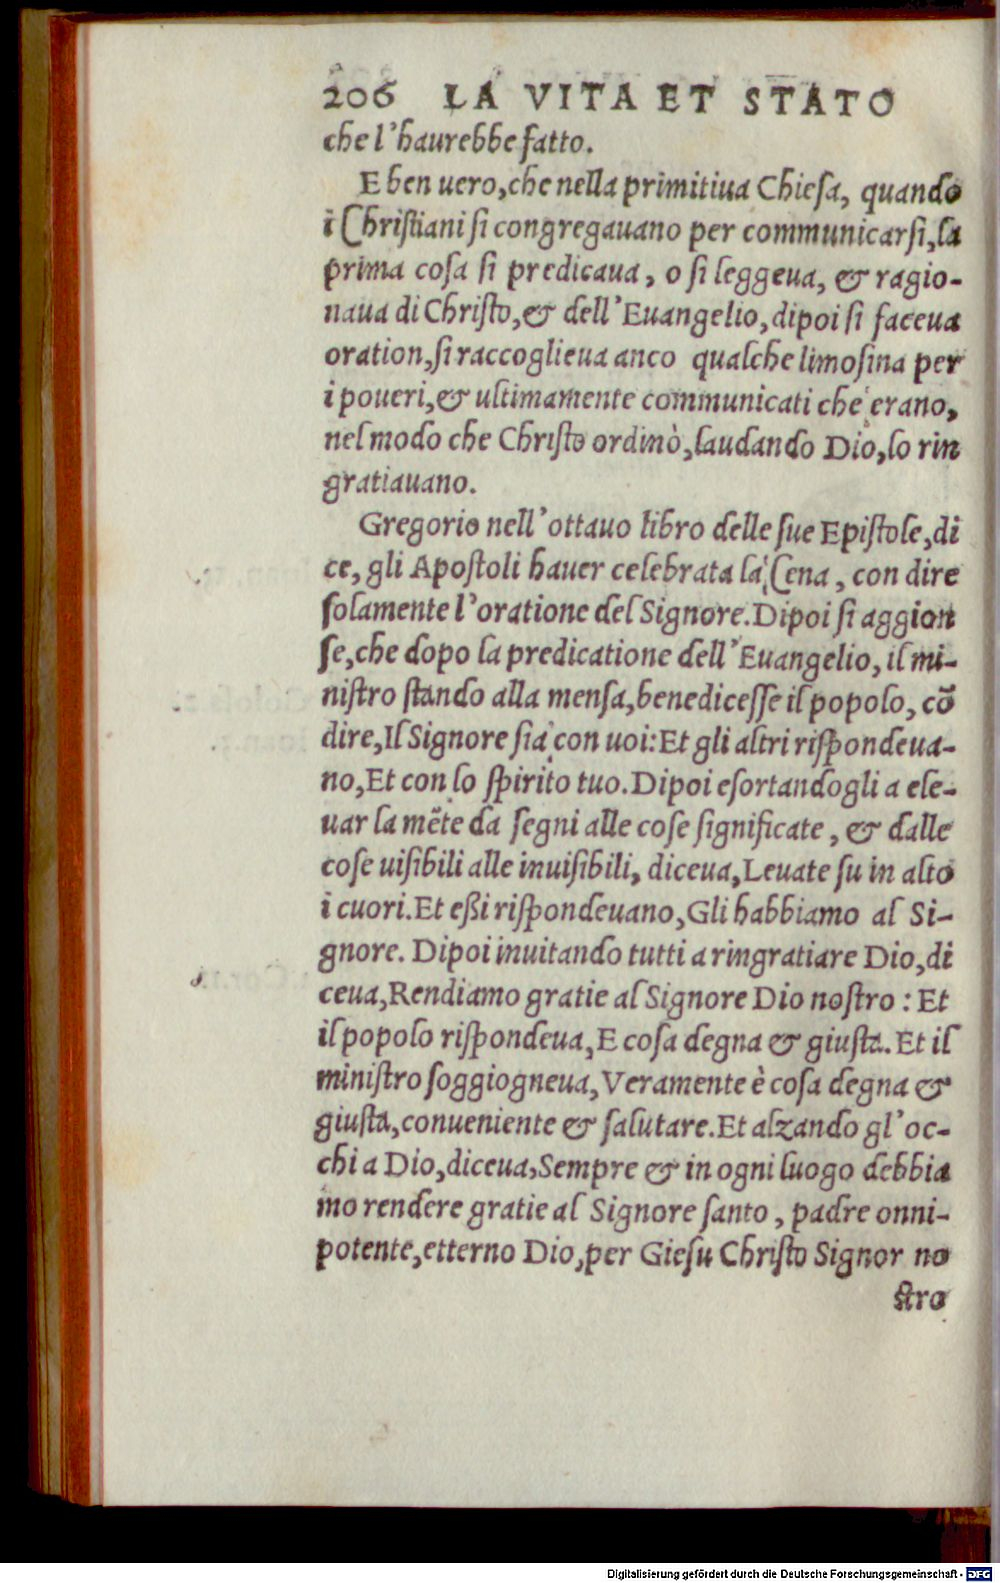 206 LA VITA ET STATO
che l'haurebbe fatto.
E ben uero, che nella primitiua Chiesa, quando
i Christiani si congregauano per communicarsi, la
prima cosa si predicaua, o si leggeua, & ragio-
naua di Christo, & dell'Euangelio, dipoi si faceua
oration, si raccoglieua anco qualche limosina per
i poueri, & ultimamente communicati che erano,
nel modo che Christo ordinò, laudando Dio, lo rin
gratiauano.
Gregorio nell'ottauo libro delle sue Epistole, di
ce, gli Apostoli hauer celebrata la Cena, con dire
solamente l'oratione del Signore. Dipoi si aggion
se, che dopo la predicatione dell'Euangelio, il mi-
nistro stando alla mensa, benedicesse il popolo, cō
dire, Il Signore sia con uoi: Et gli altri rispondeua-
no, Et con lo spirito tuo. Dipoi esortandogli a ele-
uar la mēte da segni alle cose significate, & dalle
cose uisibili alle inuisibili, diceua, Leuate su in alto
i cuori. Et eßi rispondeuano, Gli habbiamo al Si-
gnore. Dipoi inuitando tutti a ringratiare Dio, di
ceua, Rendiamo gratie al Signore Dio nostro: Et
il popolo rispondeua, E cosa degna & giusta. Et il
ministro soggiogneua, Veramente è cosa degna &
giusta, conueniente & salutare. Et alzando gl'oc-
chi a Dio, diceua, Sempre & in ogni luogo debbia
mo rendere gratie al Signore santo, padre onni-
potente, etterno Dio, per Giesu Christo Signor no
stro
Digitalisierung gefördert durch die Deutsche Forschungsgemeinschaft - DFG